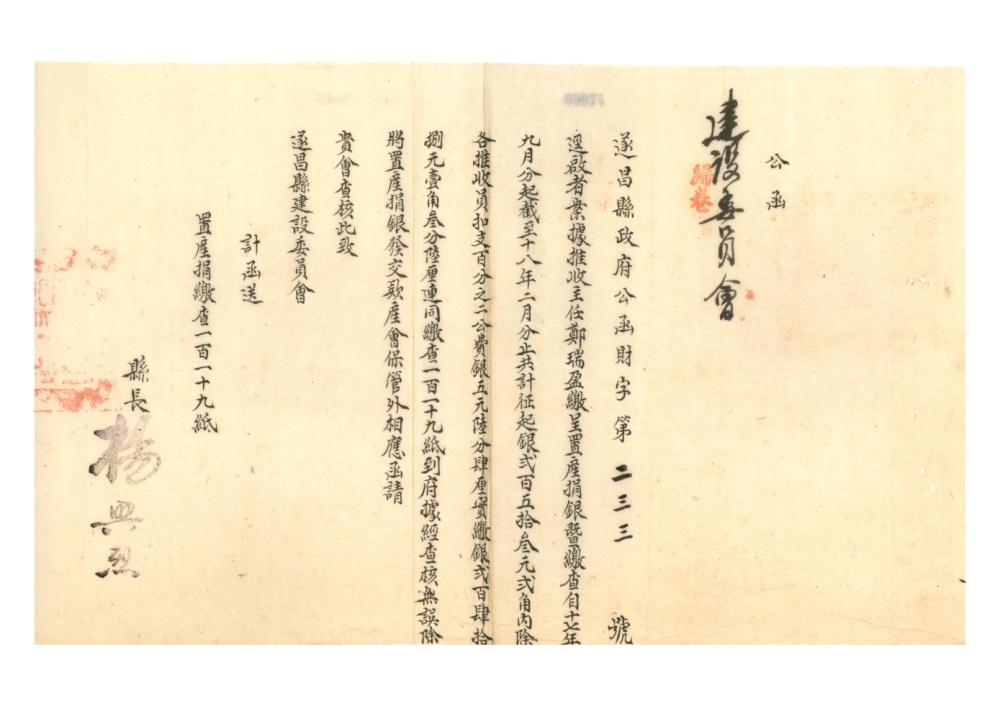 公函
建設委員會
歸卷
00074
遂昌縣政府公函財字第二三三號
逕啟者案據推收主任鄭瑞盈繳呈置產捐銀暨繳查自十七年
九月分起截至十八年二月分止共計征起銀弍百五拾叁元弍角內除
各推收員扣支百分之二公費銀五元陸分肆厘實繳銀弍百肆拾
捌元壹角叁分陸厘連同繳查一百一十九紙到府據經查核無誤除
將置產捐銀發交款產會保管外相應函請
貴會查核此致
遂昌縣建設委員會
計函送
置產捐繳查一百一十九紙
縣長